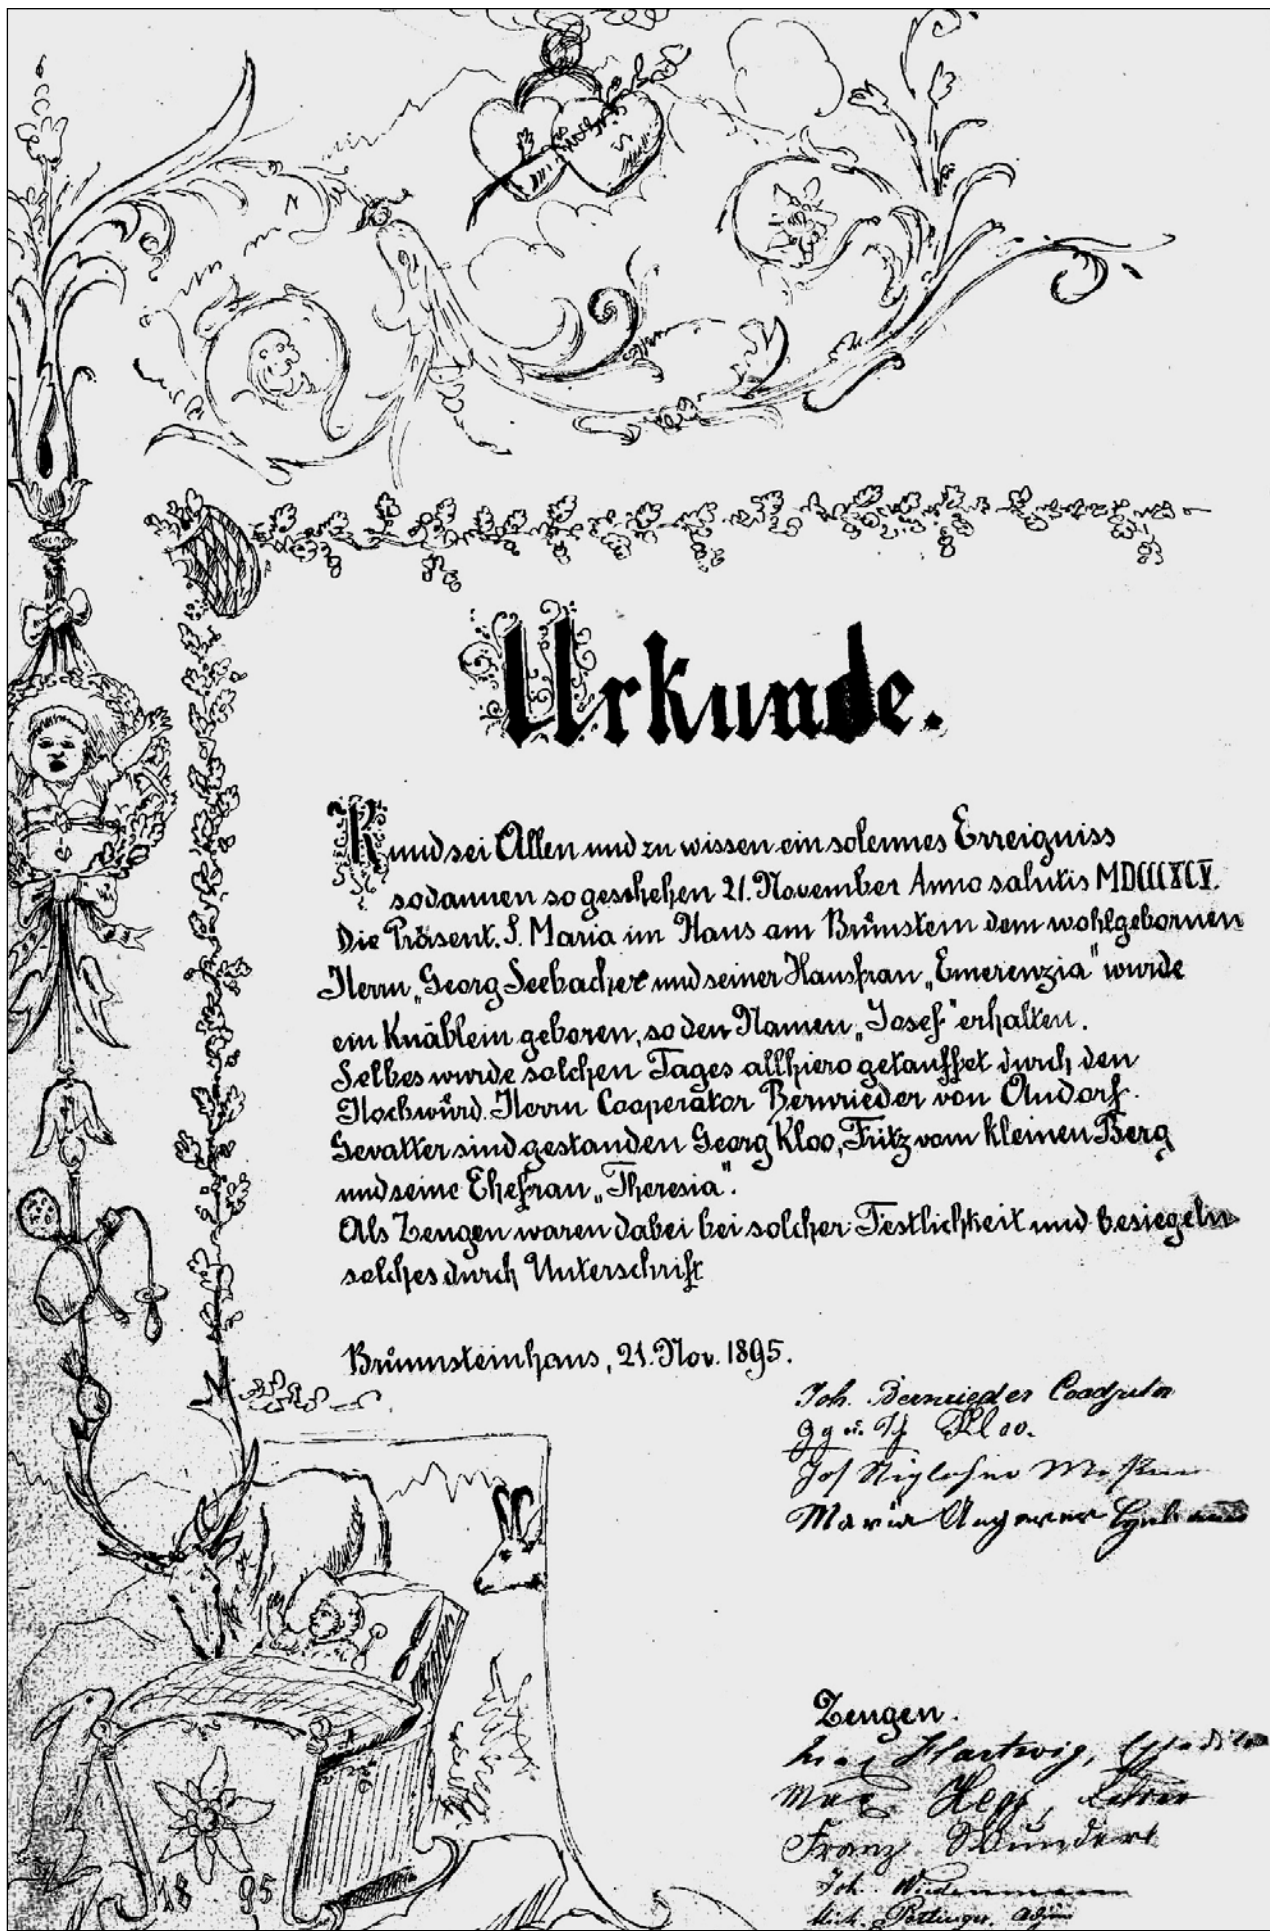 Urkunde.
Kund sei Allen und zu wissen ein solennes Erreigniss
sodannen so geschehen 21. November Anno salutis MDCCCXCV.
Die Präsent. S. Maria im Haus am Brünstein dem wohlgebornen
Herrn „Georg Seebacher und seiner Hausfrau „Emerenzia" wurde
ein Knäblein geboren, so den Namen „Josef" erhalten.
Selbes wurde solchen Tages allhiero getauffet durch den
Hochwürd. Herrn Cooperator Bernrieder von Audorf.
Gevatter sind gestanden Georg Kloo, Fritz vom kleinen Berg
und seine Ehefrau „Theresia".
Als Zeugen waren dabei bei solcher Festlichkeit und besiegeln
solches durch Unterschrift
Brünnsteinhaus, 21. Nov. 1895.
Joh. Bernrieder Coadjutor
Gg u. Th Kloo.
Jos
Maria
Zeugen.
Hartwig,
Max
Franz Wundert
Joh. Wiedenmann
Mich. Pottinger.
18 95